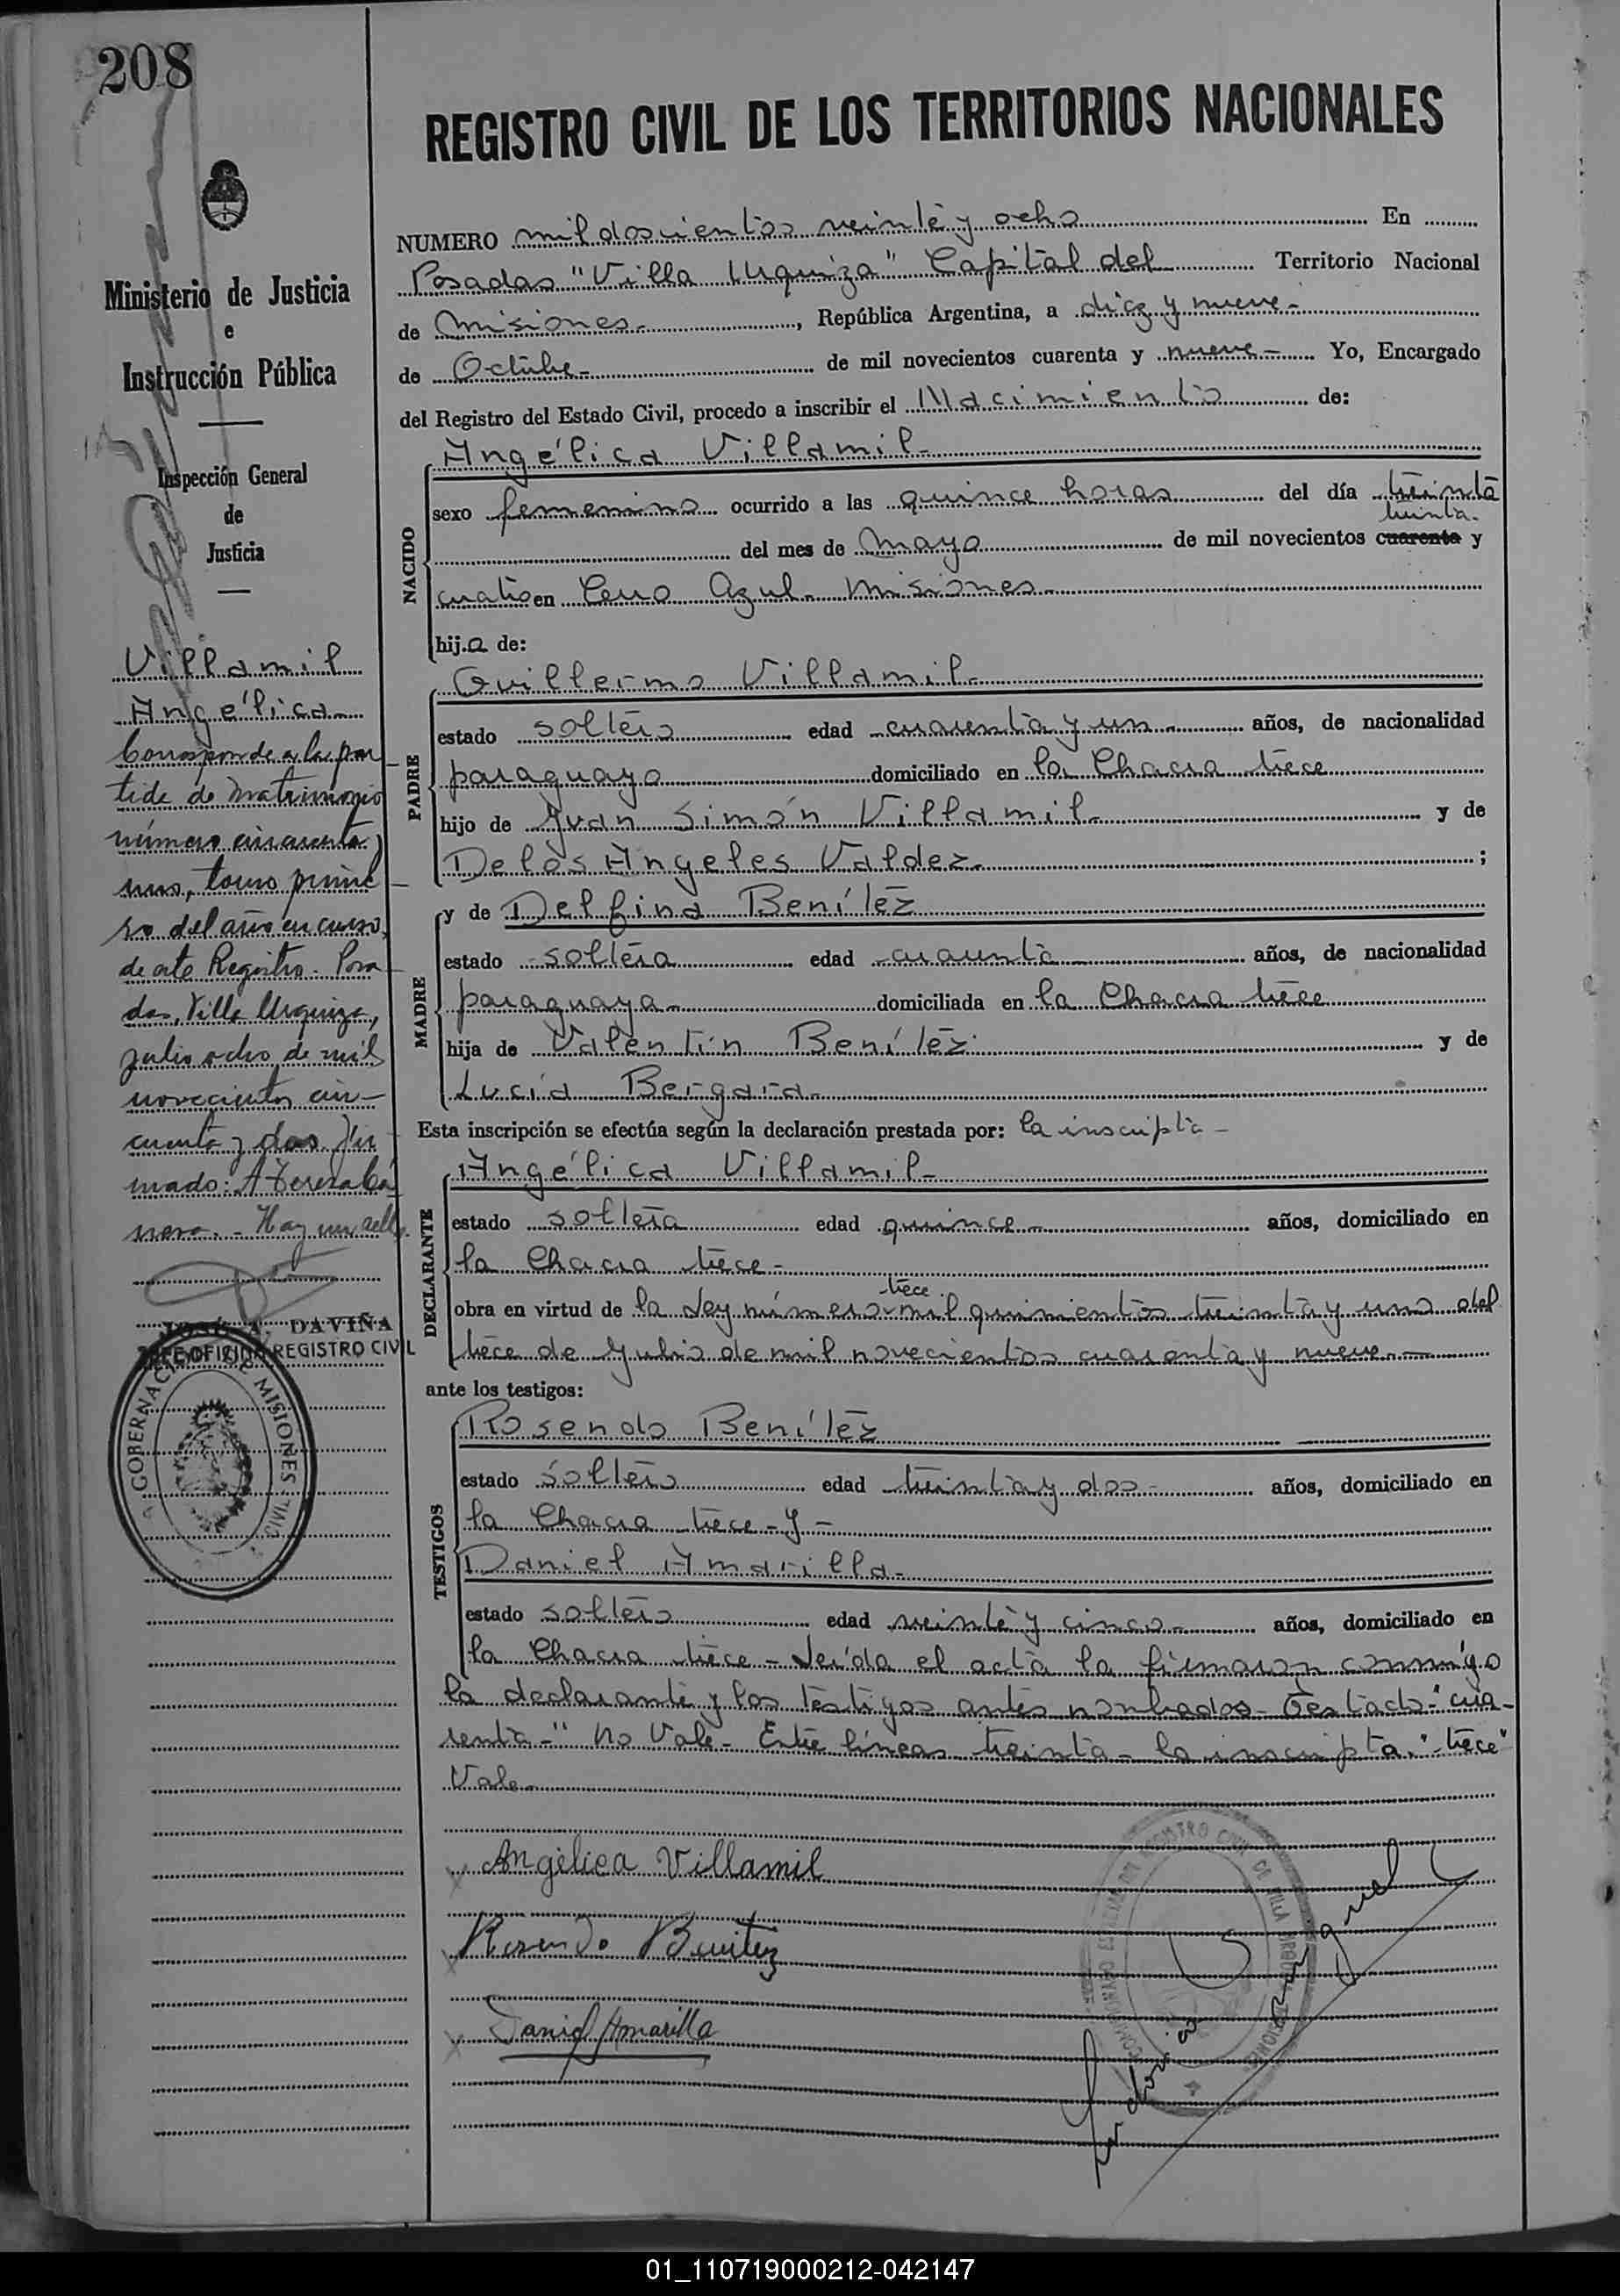 208
REGISTRO CIVIL DE LOS TERRITORIOS NACIONALES
NUMERO mil doscientos veinte y ocho En
Posadas "Villa Urquiza" Capital del Territorio Nacional
de Misiones.- , República Argentina, a diez y nueve-
de Octubre- de mil novecientos cuarenta y nueve- Yo, Encargado
del Registro del Estado Civil, procedo a inscribir el Nacimiento de:
Angélica Villamil-
NACIDO
sexo femenino ocurrido a las quince horas del día treinta
treinta-
del mes de Mayo de mil novecientos cuarenta y
cuatro en Cerro Azul- Misiones-
hija de:
Guillermo Villamil-
PADRE
estado soltero edad cuarenta y un- años, de nacionalidad
paraguayo domiciliado en la Chacra trece
hijo de Juan Simón Villamil- y de
De los Angeles Valdez- ;
y de Delfina Benítez
MADRE
estado soltera edad cuarenta años, de nacionalidad
paraguaya- domiciliada en la Chacra trece
hija de Valentín Benítez y de
Lucía Bergara-
Esta inscripción se efectúa según la declaración prestada por: la inscripta-
Angélica Villamil-
DECLARANTE
estado soltera edad quince- años, domiciliado en
la Chacra trece-
trece
obra en virtud de la Ley número-mil quinientos treinta y uno del
trece de Julio de mil novecientos cuarenta y nueve.-
ante los testigos:
Rosendo Benítez
TESTIGOS
estado soltero edad treinta y dos- años, domiciliado en
la Chacra trece-y-
Daniel Amarilla-
estado soltero edad veinte y cinco- años, domiciliado en
la Chacra trece- Leída el acta la firmaron conmigo
la declarante y los testigos antes nombrados- Testado-"cua-
renta-" No Vale- Entre líneas treinta- la inscripta-"trece"
Vale-
Angélica Villamil
Rosendo Benitez
Daniel Amarilla
Ministerio de Justicia
e
Instrucción Pública
Inspección General
de
Justicia
Villamil
Angélica-
Corresponde a la par-
tida de Matrimonio
número cincuenta y
uno, tomo prime-
ro del año en curso,
de este Registro. Posa-
das, Villa Urquiza,
julio ocho de mil
novecientos cin-
cuenta y dos. Fir-
mado: A
Hay un sello.
JOSÉ A. DAVIÑA
JEFE OFICINA REGISTRO CIVIL
GOBERNACION DE MISIONES
01_110719000212-042147